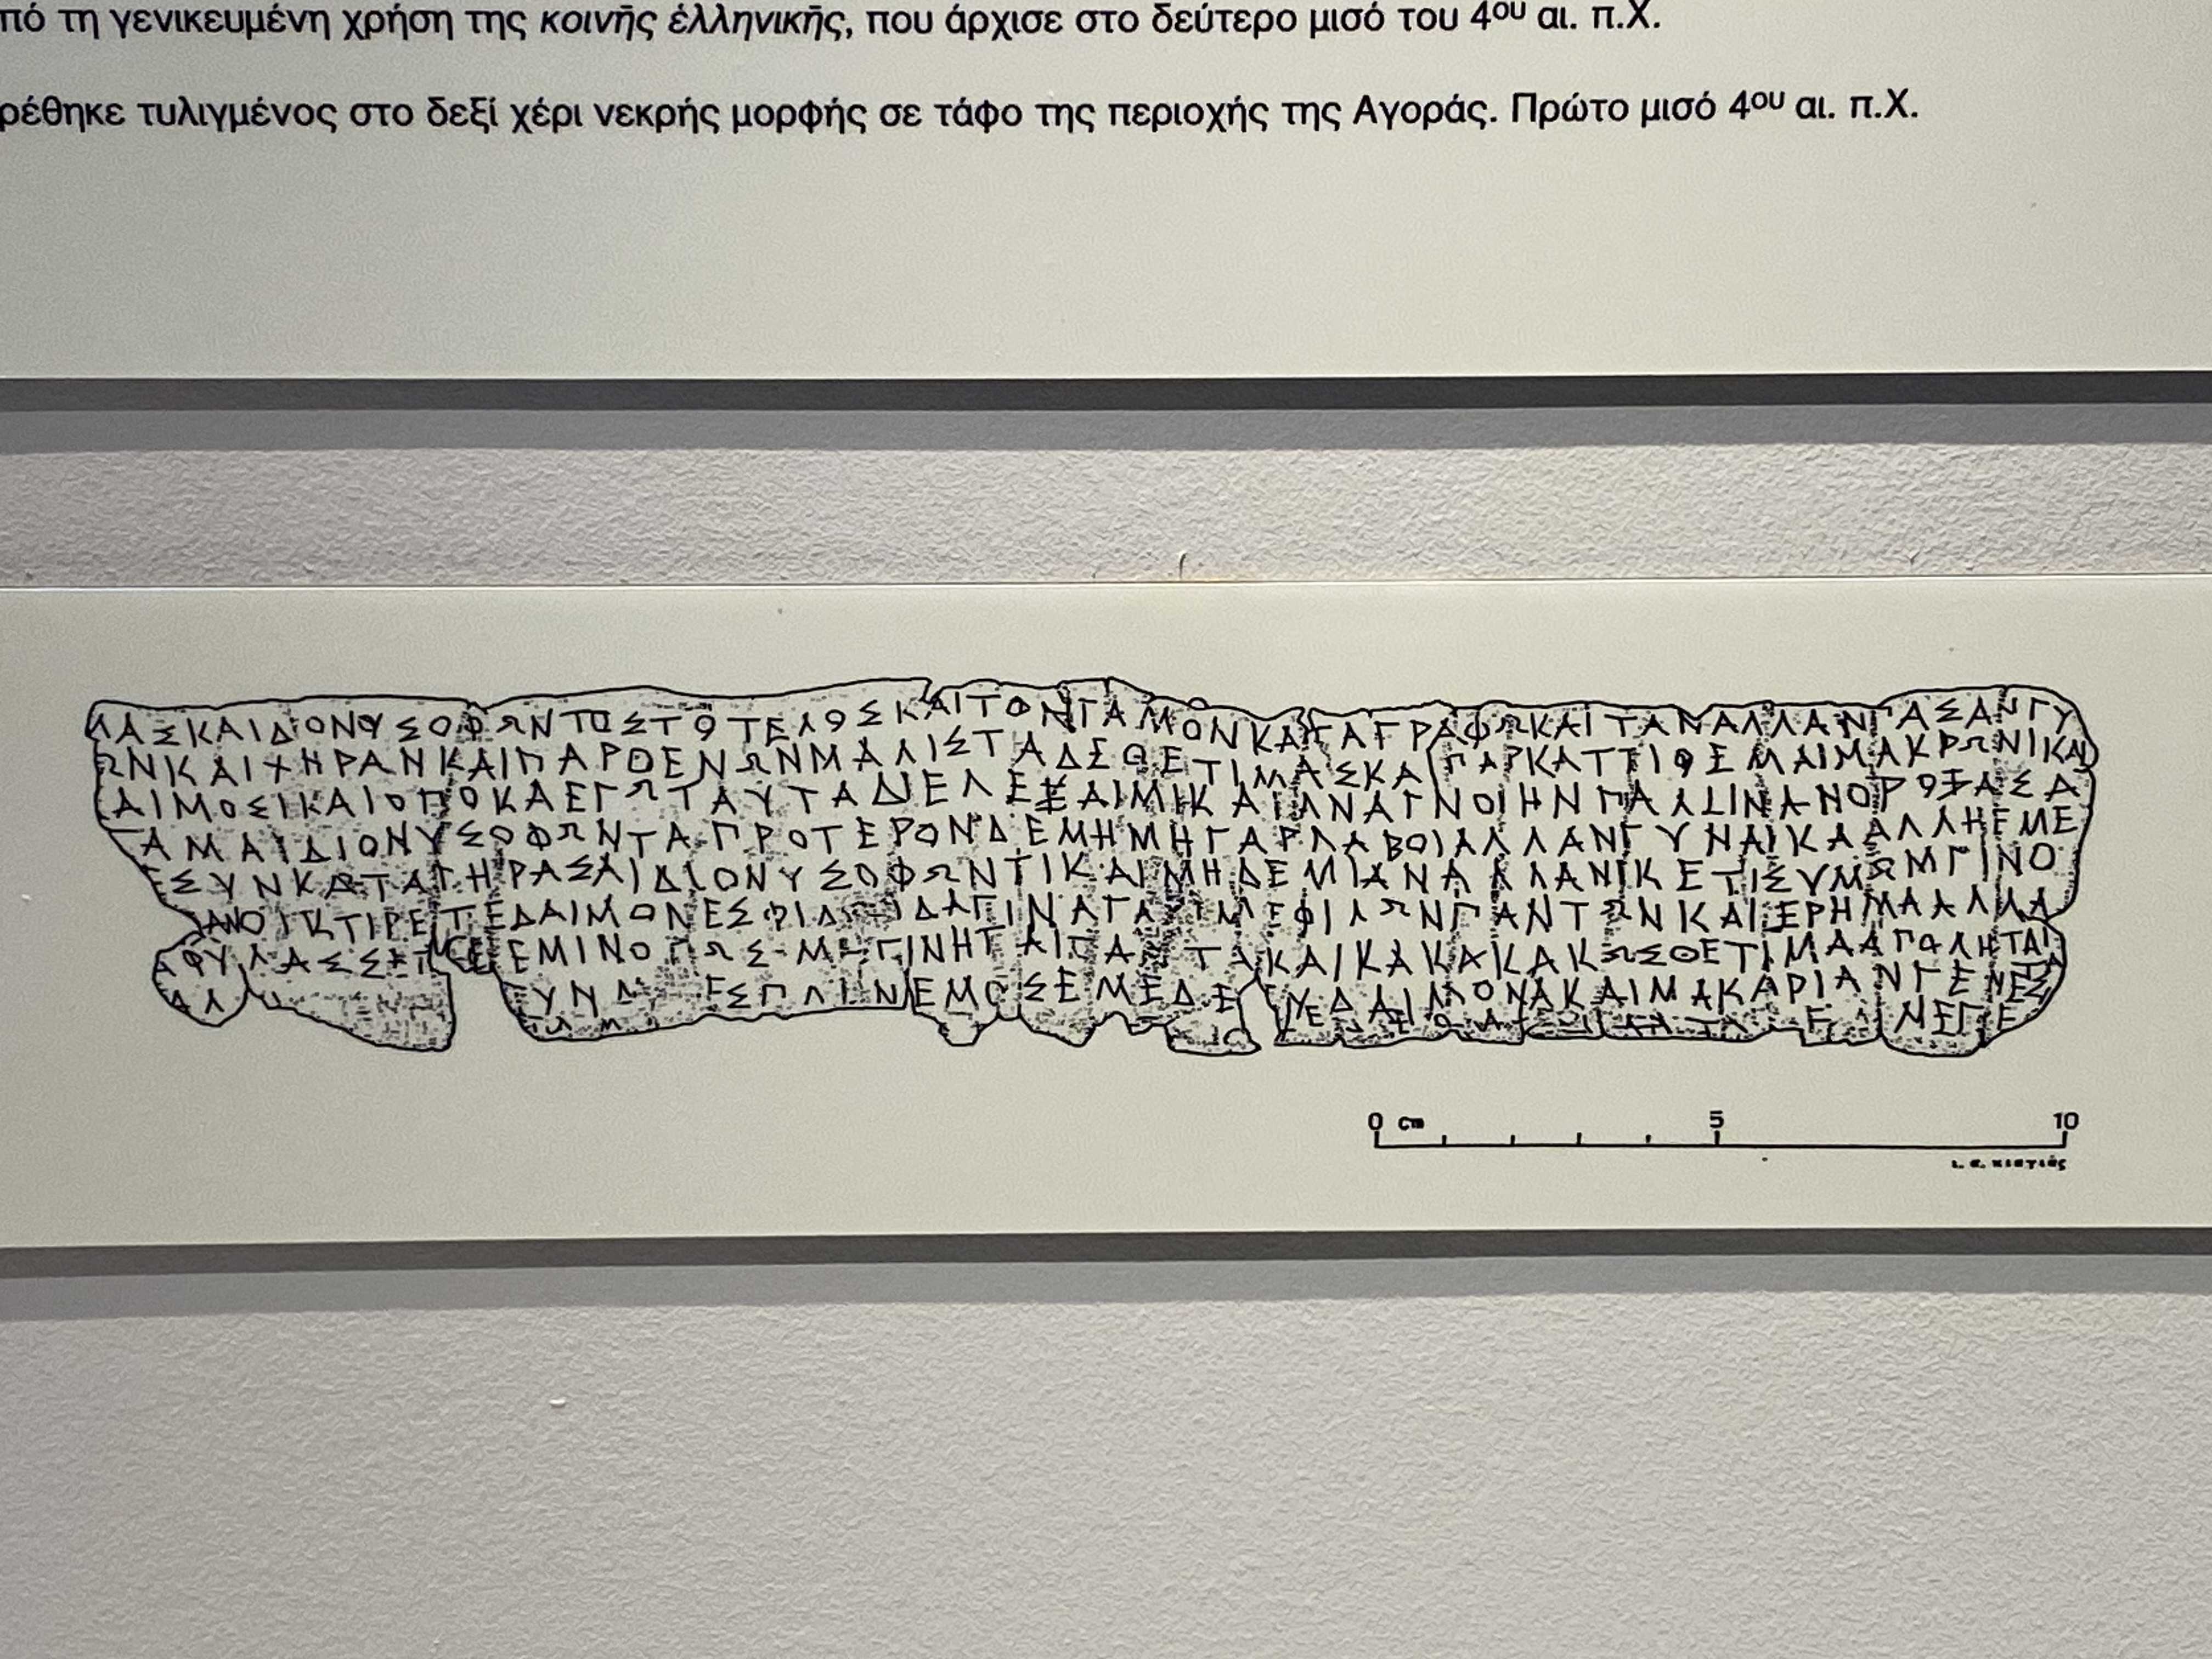 πό τη γενικευμένη χρήση της κοινῆς ἑλληνικῆς, που άρχισε στο δεύτερο μισό του 4ου αι. π.Χ.
ρέθηκε τυλιγμένος στο δεξί χέρι νεκρής μορφής σε τάφο της περιοχής της Αγοράς. Πρώτο μισό 4ου αι. π.Χ.
ΛΑΣΚΑΙΔΙΟΝΥΣΟΦΩΝΤΟΣΤΟΤΕΛΟΣΚΑΙΤΟΝΓΑΜΟΝΚΑΤΑΓΡΑΦΩΚΑΙΤΑΝΑΛΛΑΝΠΑΣΑΝΓΥ
ΩΝΚΑΙΧΗΡΑΝΚΑΙΠΑΡΘΕΝΩΝΜΑΛΙΣΤΑΔΕΘΕΤΙΜΑΣΚΑΙΠΑΡΚΑΤΤΙΘΕΜΑΙΜΑΚΡΩΝΙΚΑΙ
ΔΑΙΜΟΣΙΚΑΙΟΠΟΚΑΕΓΩΤΑΥΤΑΔΙΕΛΕΞΑΙΜΙΚΑΙΑΝΑΓΝΟΙΗΝΠΑΛΙΝΑΝΟΡΟΞΑΣΑ
ΓΑΜΑΙΔΙΟΝΥΣΟΦΩΝΤΑΠΡΟΤΕΡΟΝΔΕΜΗΜΗΓΑΡΛΑΒΟΙΑΛΛΑΝΓΥΝΑΙΚΑΑΛΛΗΕΜΕ
ΕΣΥΝΚΑΤΑΓΗΡΑΣΑΙΔΙΟΝΥΣΟΦΩΝΤΙΚΑΙΜΗΔΕΜΙΑΝΑΛΛΑΝΙΚΕΤΙΣΥΜΩΜΓΙΝΟ
ΑΝΟΙΚΤΙΡΕΤΕΔΑΙΜΟΝΕΣΦΙΛ ΔΑΓΙΝΑΓΑΡΙΜΕΦΙΛΩΝΠΑΝΤΩΝΚΑΙΕΡΗΜΑΑΛΛΑ
ΑΦΥΛΑΣΣΕΤΕΕΜΙΝΟΠΩΣΜΗΓΙΝΗΤΑΙΤΑΥΤΑΚΑΙΚΑΚΑΚΑΚΩΣΘΕΤΙΜΑΑΠΟΛΗΤΑΙ
ΑΛ ΥΝ ΕΣΠΛΙΝΕΜΟΣΕΜΕΔΕΥΕΔΑΙΜΟΝΑΚΑΙΜΑΚΑΡΙΑΝΓΕΝΕΣΤΑ
ΜΕΓΕ
0 cm 5 10